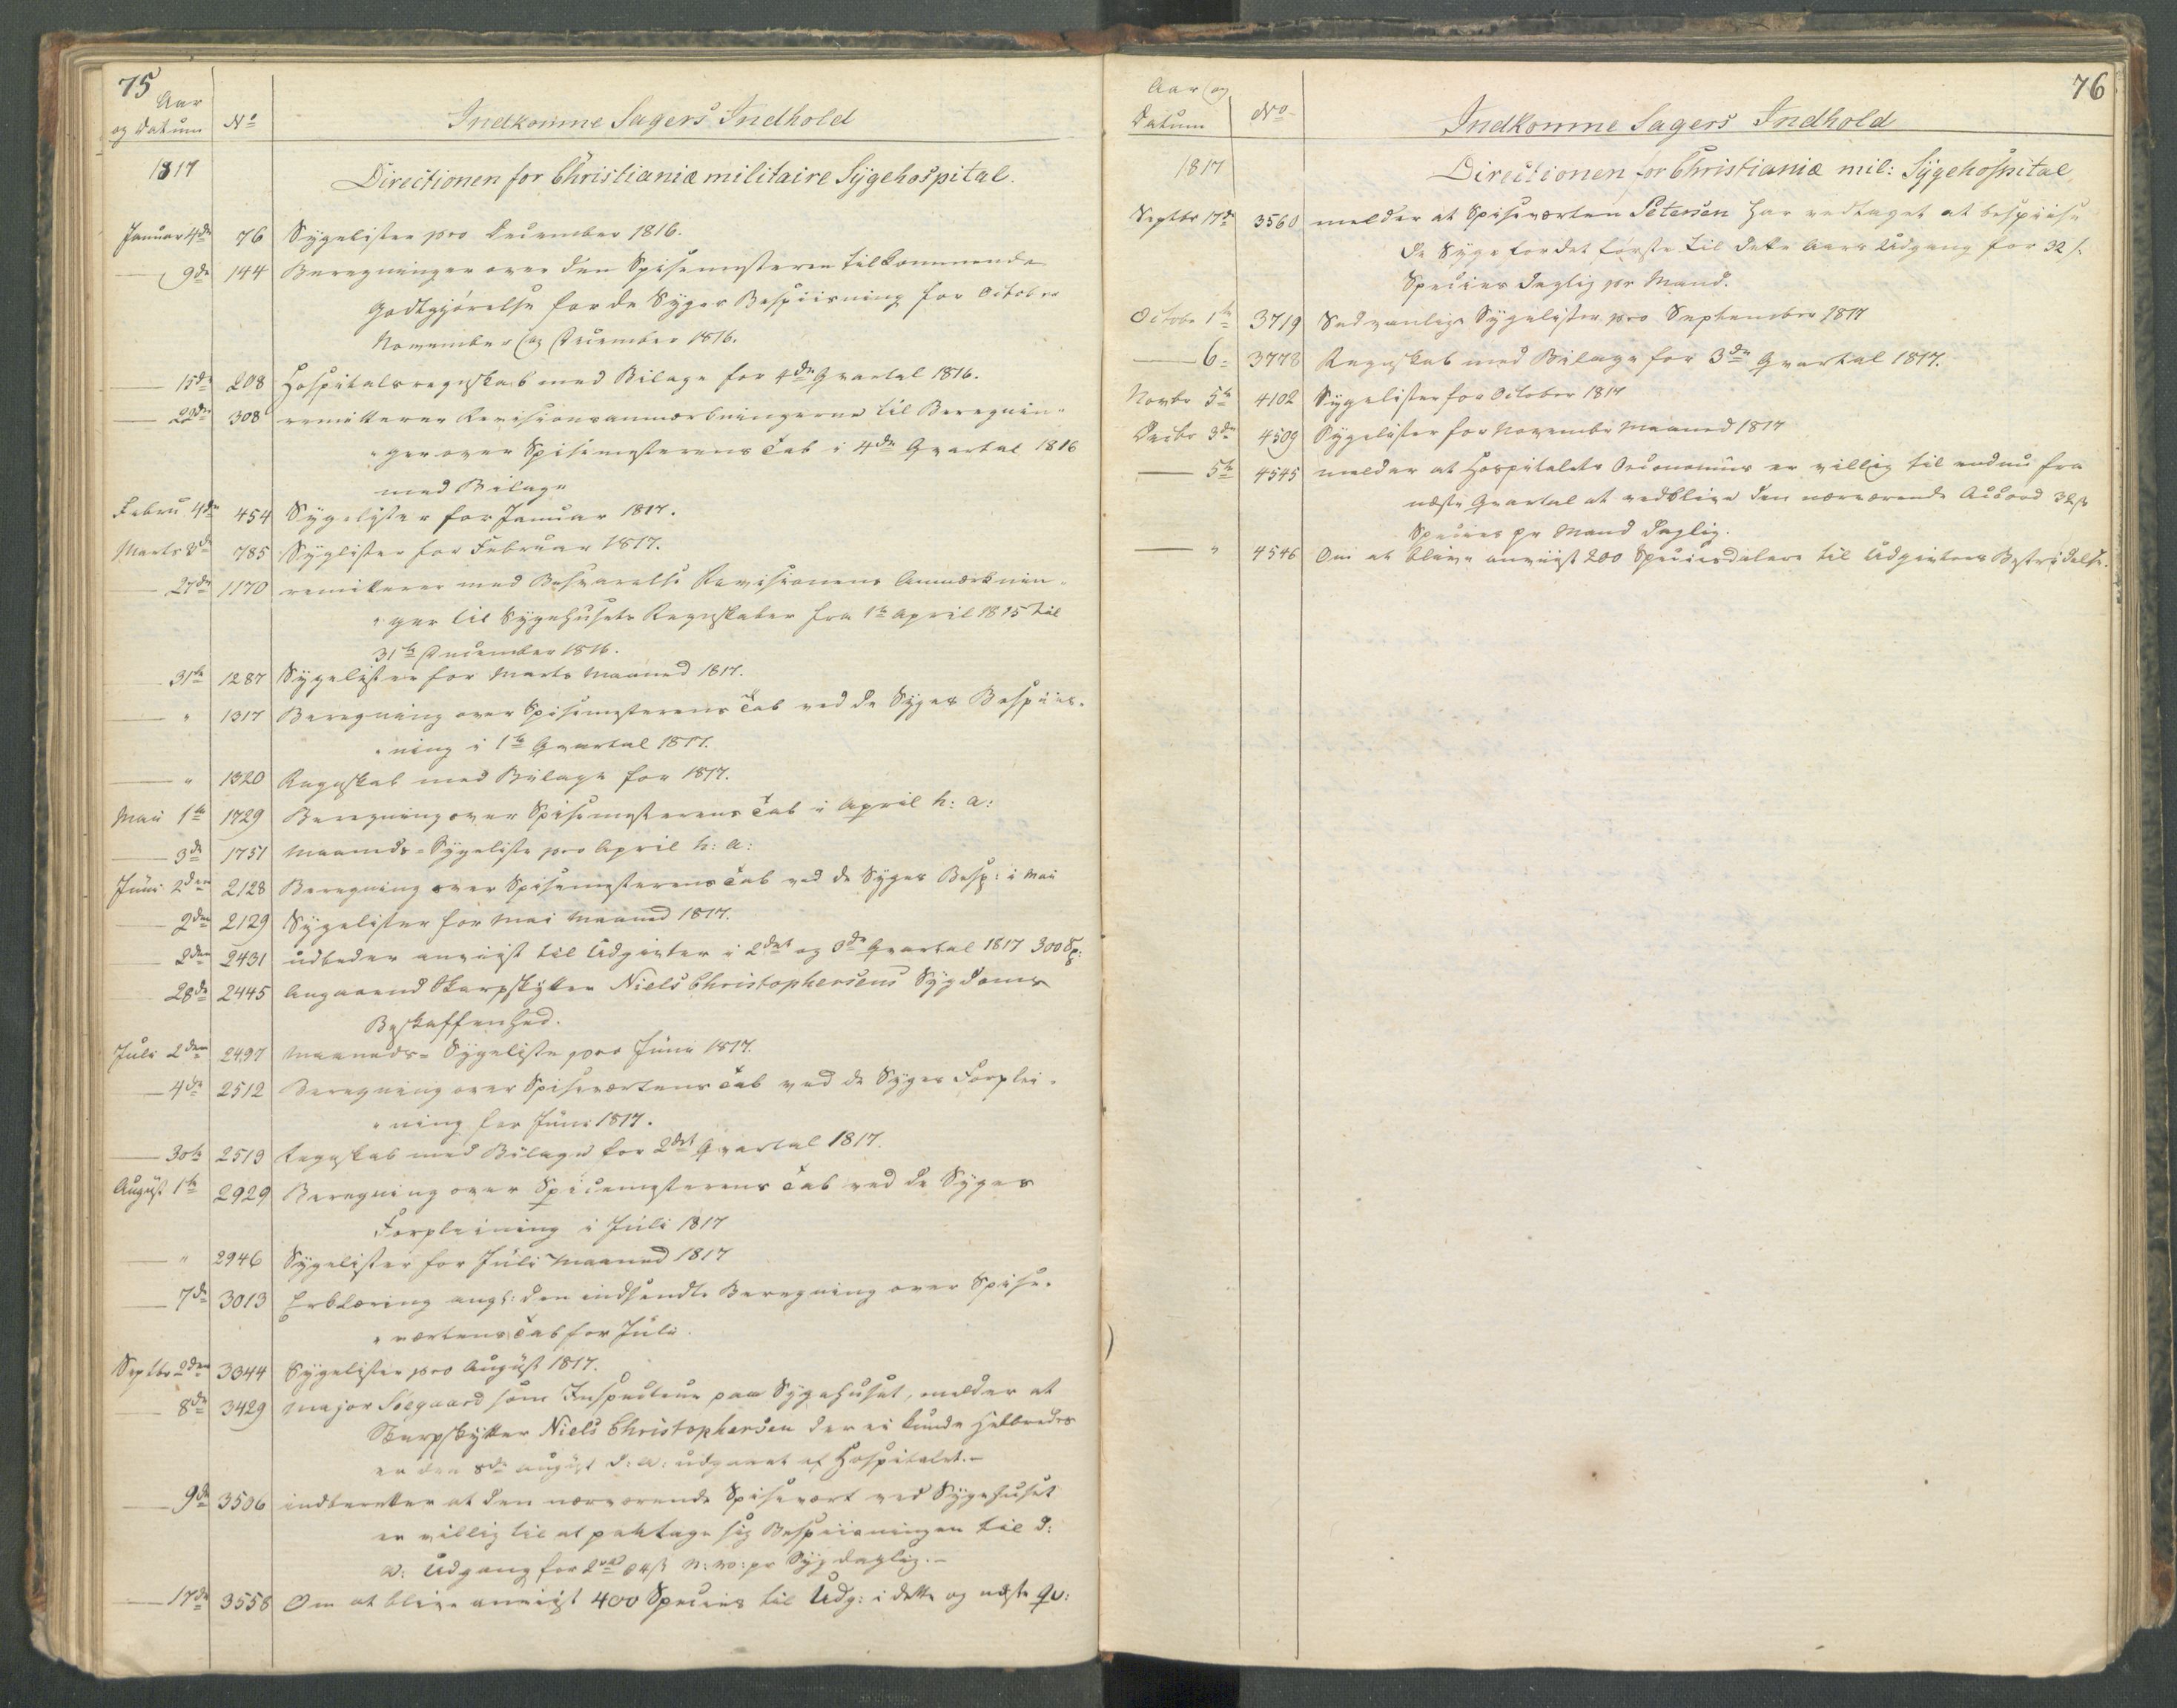 75
Aar
og Datum No Indkomne Sagers Indhold
1817 Directionen for Christiania militaire Sygehospital.
Januar 4de 76 Sygelister pro December 1816.
— 9de 144 Beregninger over den Spisemesteren tilkommende
Godtgjörelse for de Syges Bespiisning for October
November og December 1816.
— 15de 208 Hospitalsregnskab med Bilage for 4de Qvartal 1816.
— 22de 308 remitterer Revisionsanmærkningerne til Beregnin-
-ger over Spisemesterens Tab i 4de Qvartal 1816
med Bilage
Febru 4de 454 Sygelister for Januar 1817.
Marts 3de 785 Syglister for Februar 1817.
— 27de 1170 remitterer med Besvarelse Revisionens Anmærknin-
-ger til Sygehusets Regnskaber fra 1te April 1815 til
31te December 1816.
— 31te 1287 Sygelister for Marts Maaned 1817.
— " 1317 Beregning over Spisemesterens Tab ved de Syges Bespiis-
-ning i 1te Qvartal 1817.
— " 1320 Regnskab med Bilage for 1817.
Mai 1te 1729 Beregning over Spisemesterens Tab i April h: a:
— 3de 1751 Maaneds-Sygeliste pro April h: a:
Juni 2den 2128 Beregning over Spisemesterens Tab ved de Syges Besp: i Mai
— 2den 2129 Sygelister for Mai Maaned 1817.
— 2den 2431 udbeder anviist til Udgivter i 2det og 3de Qvartal 1817 300 Sp:
— 28de 2445 Angaaend Skarpskytter Niels Christophersens Sygdoms
Beskaffenhed.
Juli 2den 2497 Maaneds-Sygeliste pro Juni 1817.
— 4de 2512 Beregning over Spiseværtens Tab ved de Syges Forplei-
-ning for Juni 1817.
— 30te 2519 Regnskab med Bilage for 2det Qvartal 1817.
August 1te 2929 Beregning over Spisemesterens Tab ved de Syges
Forpleining i Juli 1817
— " 2946 Sygelister for Juli Maaned 1817
— 7de 3013 Erklæring angl: den indsendte Beregning over Spise-
-værtens Tab for Juli.
Septbr 2den 3344 Sygelister pro August 1817.
— 8de 3429 Major Söegaard som Inspecteur paa Sygehuset, melder at
Skarpskytter Niels Christophersen der ei kunde Helbredes
er den 8de August d: A: udgaaet af Hospitalet.-
— 9de 3506 indberetter at den nærværende Spisevært ved Sygehuset
er villig til at paatage sig Bespiisningen til d:
A: Udgang for pr Syg daglig.-
— 17de 3558 Om at blive anviist 400 Species til Udg: i dette og næste Qv:
76
Aar og
Datum No Indkomne Sagers Indhold
1817 Directionen for Christiania mil: Sygehospital,
Septbr 17de 3560 melder at Spiseværten Petersen har vedtaget at bespiise
de Syge for det første til dette Aars Udgang for 32 s.
Species daglig pr Mand.
Octobr 1te 3719 Sædvanlige Sygelister pro September 1817
— 6te 3778 Regnskab med Bilage for 3de Qvartal 1817.
Novbr 5te 4102 Sygelister for October 1817
Decbr 3de 4509 Sygelister for Novembr Maaned 1817
— 5te 4545 melder at Hospitalets Oeconomus er villig til endnu fra
næste Qvartal at vedblive den nærværende Accord 32 s
Species pr Mand daglig.
— " 4546 Om at blive anviist 200 Speciesdalere til Udgivters Bestridelse.